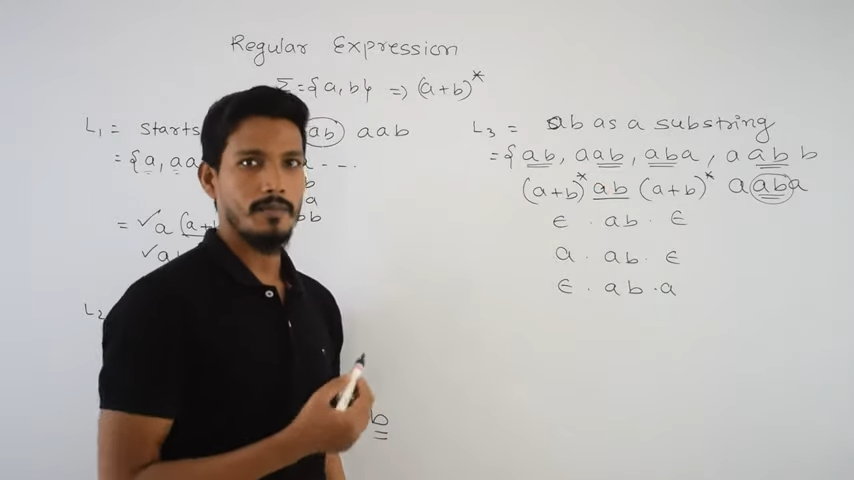 Regular Expression
Σ={a,b} => (a+b)*
L₁ = starts ab aab
= {a, aa a ---
b
a
bb
= ✓a (a+b
✓ab
L₂
b
L₃ = ab as a substring
= {ab, aab, aba, aabb
(a+b)* ab (a+b)* aaba
ε . ab . ε
a . ab . ε
ε . ab . a